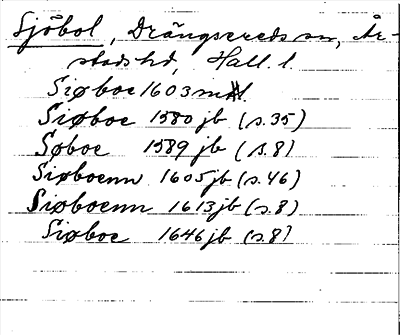 Sjöbol, Drängsereds sn, År-
stads hd, Hall. l.
Siøboe 1603 mtl.
Siøboe 1580 jb (s. 35)
Søboe 1589 jb (s. 8)
Siøboenn 1605 jb (s. 46)
Siøboenn 1613 jb (s. 8)
Siøboe 1646 jb (s. 8)